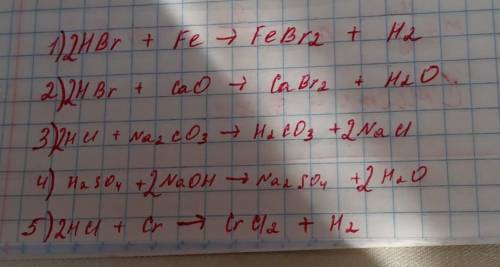 1) 2HBr + Fe → FeBr2 + H2
2) 2HBr + CaO → CaBr2 + H2O
3) 2HCl + Na2CO3 → H2CO3 + 2NaCl
4) H2SO4 + 2NaOH → Na2SO4 + 2H2O
5) 2HCl + Cr → CrCl2 + H2